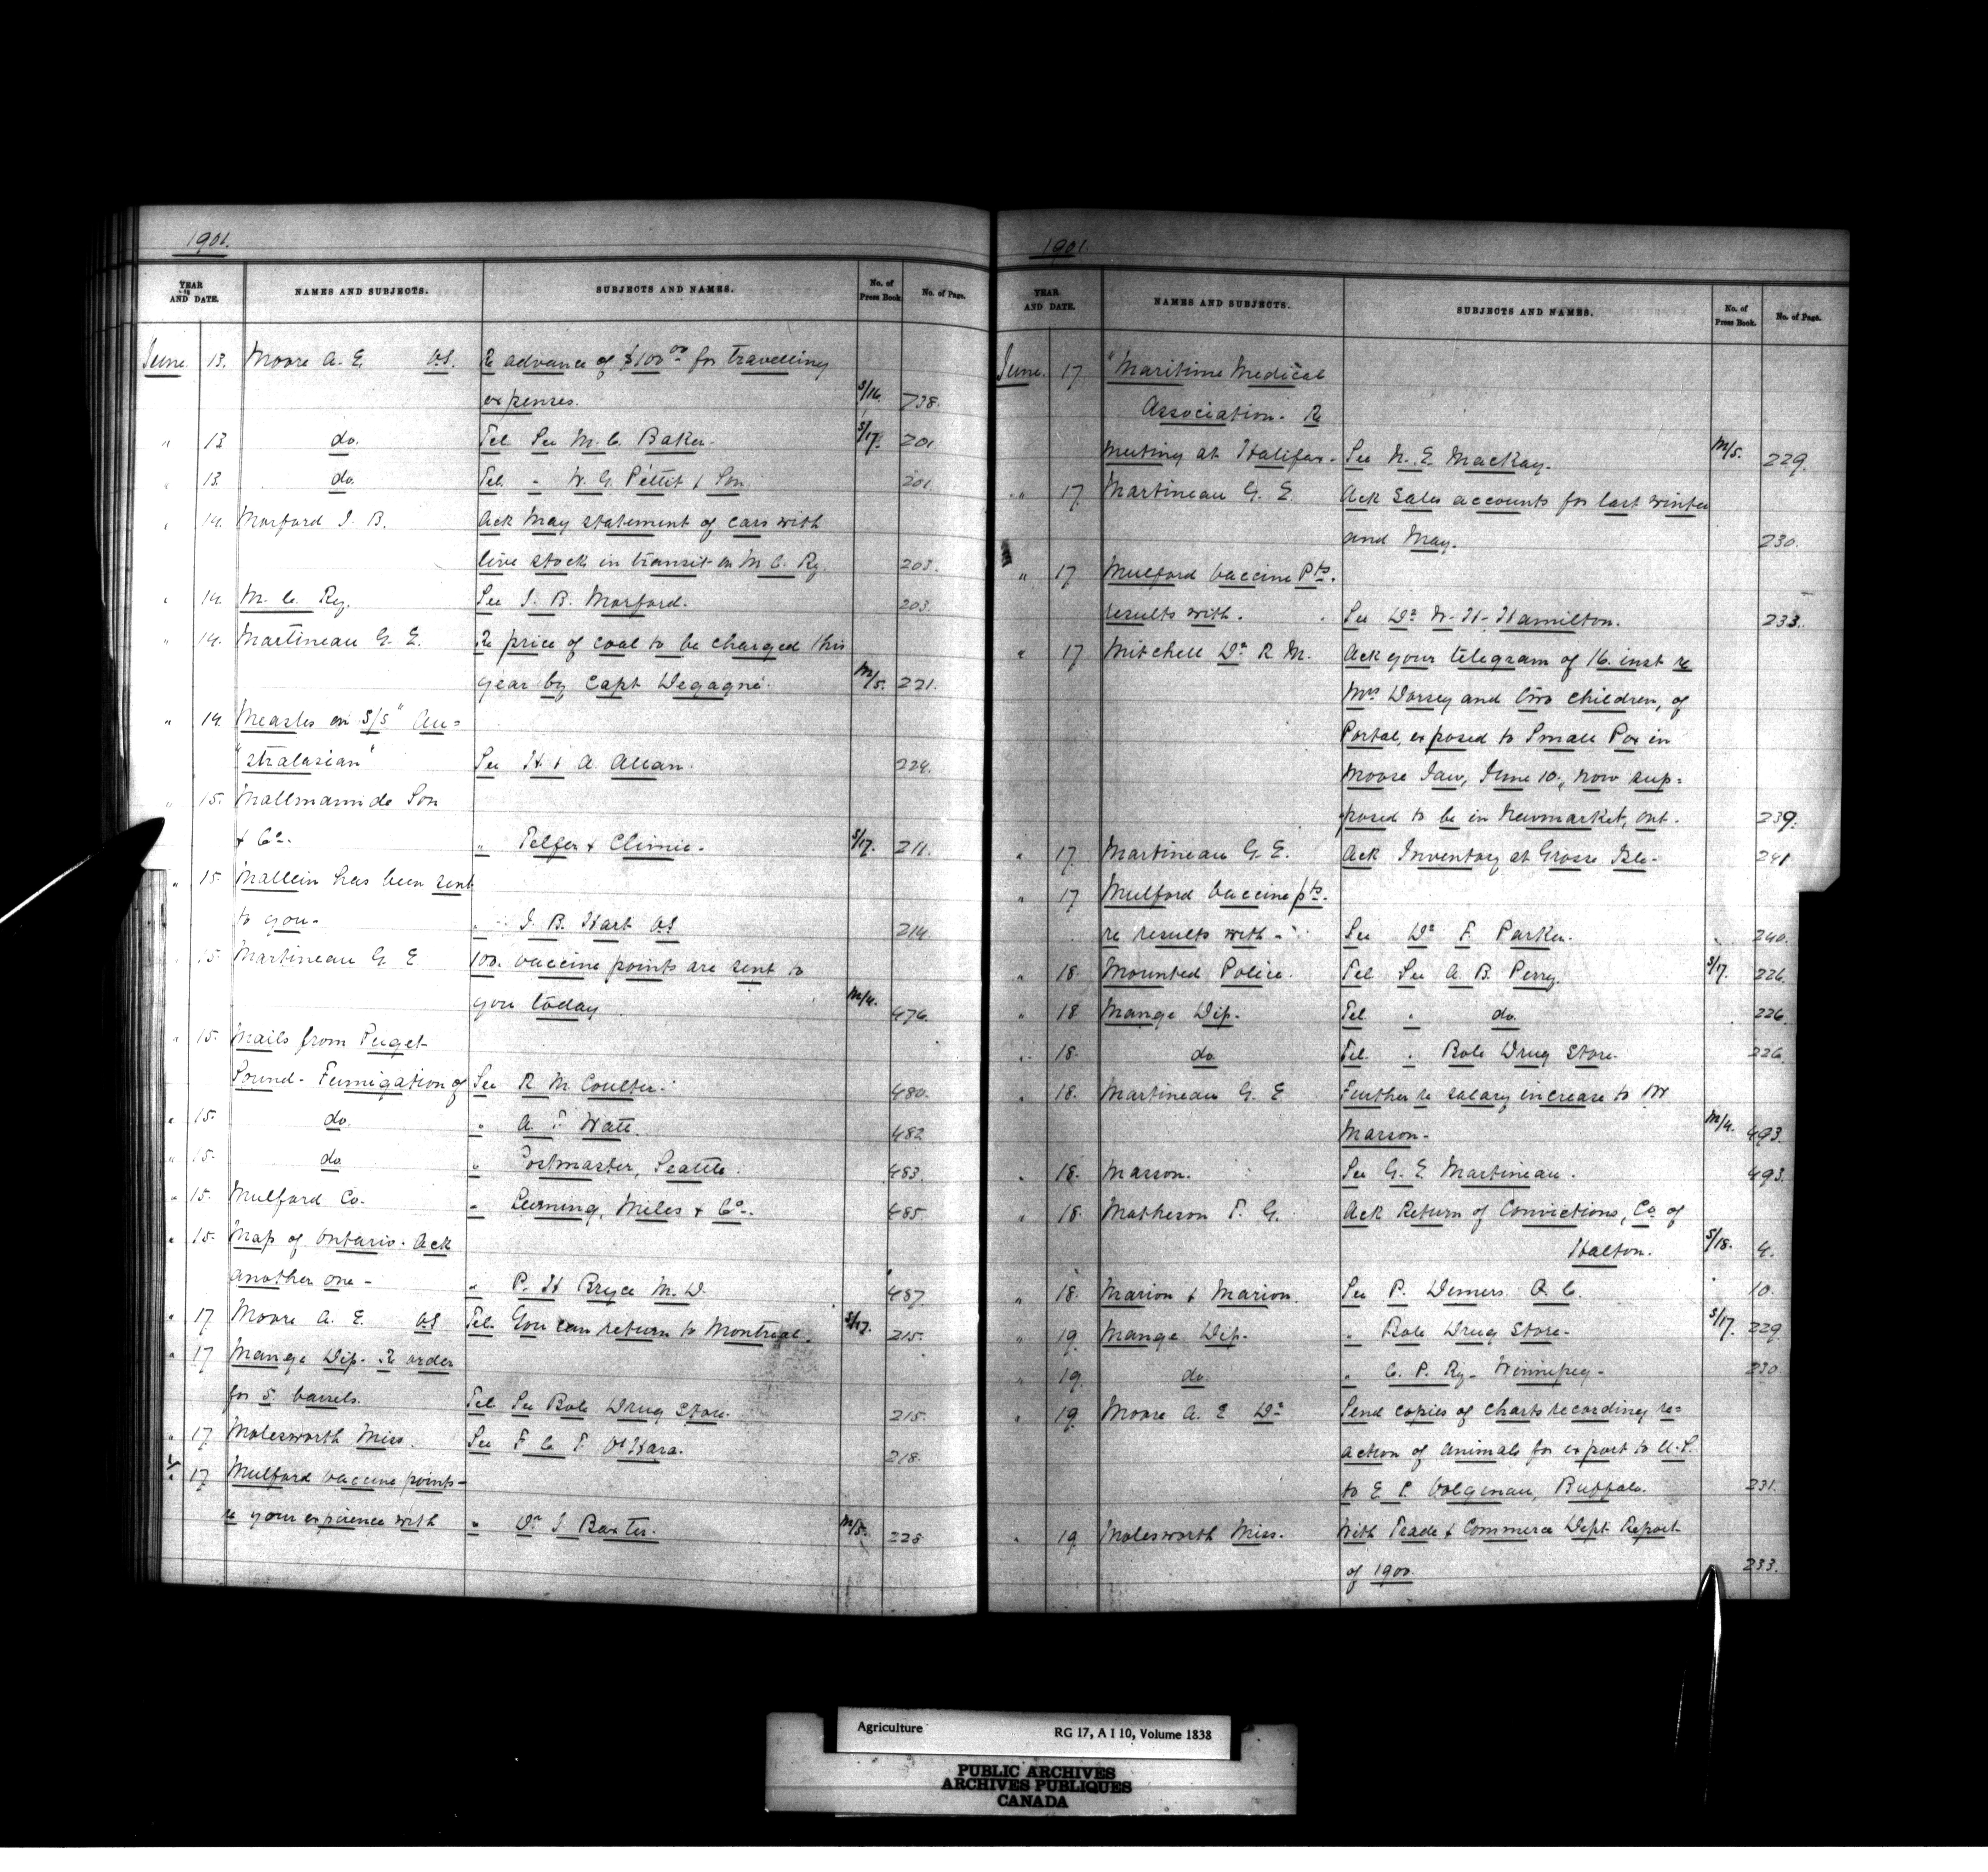 1901.
YEAR AND DATE. NAMES AND SUBJECTS. SUBJECTS AND NAMES. No. of Press Book. No. of Page.
June. 13. Moore A. E. V.S. Re advance of $100.00 for travelling
expenses. S/16. 738.
" 13 do. Tel See M. C. Baker. S/17. 201.
" 13. do. Tel " W. G. Pettit & Son. 201.
" 14. Morford J. B. Ack May statement of cars with
live stock in transit on M. C. Ry. 203.
" 14. M. C. Ry. See J. B. Morford. 203.
" 14. Martineau G. E. Re price of coal to be charged this
year by Capt Degagné. M/5. 221.
" 14. Measles on S/S "Au=
"stralasian" See H & A. Allan. 224.
" 15. Mallmann de Son
& Co. " Telfer & Climie. S/17. 211.
" 15. Mallein has been sent
to you. " J. B. Hart VS 214.
" 15. Martineau G. E 100. vaccine points are sent to
you today. M/4. 476.
" 15. Mails from Puget
Sound. Fumigation of See R. M. Coulter. 480.
" 15. do. " A. T. Watt. 482
" 15. do " Postmaster, Seattle. 483.
" 15. Mulford Co. " Leeming, Miles & Co. 485.
" 15. Map of Ontario. Ack
another one - " P. H Bryce M. D. 487.
" 17 Moore A. E. VS Tel. You can return to Montreal. S/17. 215.
" 17 Mange Dip. Re order
for 5. barrels. Tel See Bole Drug Store. 215.
" 17 Molesworth Miss. See F. C. T. O'Hara. 218.
" 17 Mulford vaccine points -
re your experience with " Dr J. Baxter. M/5. 228
1901.
YEAR AND DATE. NAMES AND SUBJECTS. SUBJECTS AND NAMES. No. of Press Book. No. of Page.
June. 17 "Maritime Medical
Association. Re
meeting at Halifax. See N. E. MacKay. M/5. 229.
" 17 Martineau G. E. Ack Sales accounts for last winter
and May. 230.
" 17 Mulford vaccine Pts.
results with. See Dr W. H. Hamilton. 233.
" 17 Mitchell Dr R. M. Ack your telegram of 16. inst re
Mrs Dorsey and two children, of
Portal, exposed to Small Pox in
Moose Jaw, June 10., now sup=
posed to be in Newmarket, Ont. 239.
" 17. Martineau G. E. Ack Inventory at Grosse Isle. 241
" 17 Mulford vaccine pts.
re results with - See Dr F. Parker. 240.
" 18 Mounted Police. Tel See A. B. Perry. S/17. 226.
" 18 Mange Dip. Tel " do. 226.
" 18. do Tel. " Bole Drug Store. 226.
" 18. Martineau G. E Further re salary increase to W
Marson. M/4. 493.
" 18. Marson. See G. E Martineau. 493.
" 18 Matheson T. G. Ack Return of Convictions, Co. of
Halton. S/18. 4.
" 18. Marion & Marion. See P. Demers. Q. C. 10.
" 19. Mange Dip. " Bole Drug Store. S/17. 229.
" 19. do. " C. P. Ry. Winnipeg. 230.
" 19 Moore A. E Dr Send copies of charts recording re=
action of animals for export to U.S.
to E. P. Buffalo. 231.
" 19 Molesworth Miss. With Trade & Commerce Dept. Report
of 1900. 233.
Agriculture RG 17, A I 10, Volume 1838
PUBLIC ARCHIVES
ARCHIVES PUBLIQUES
CANADA